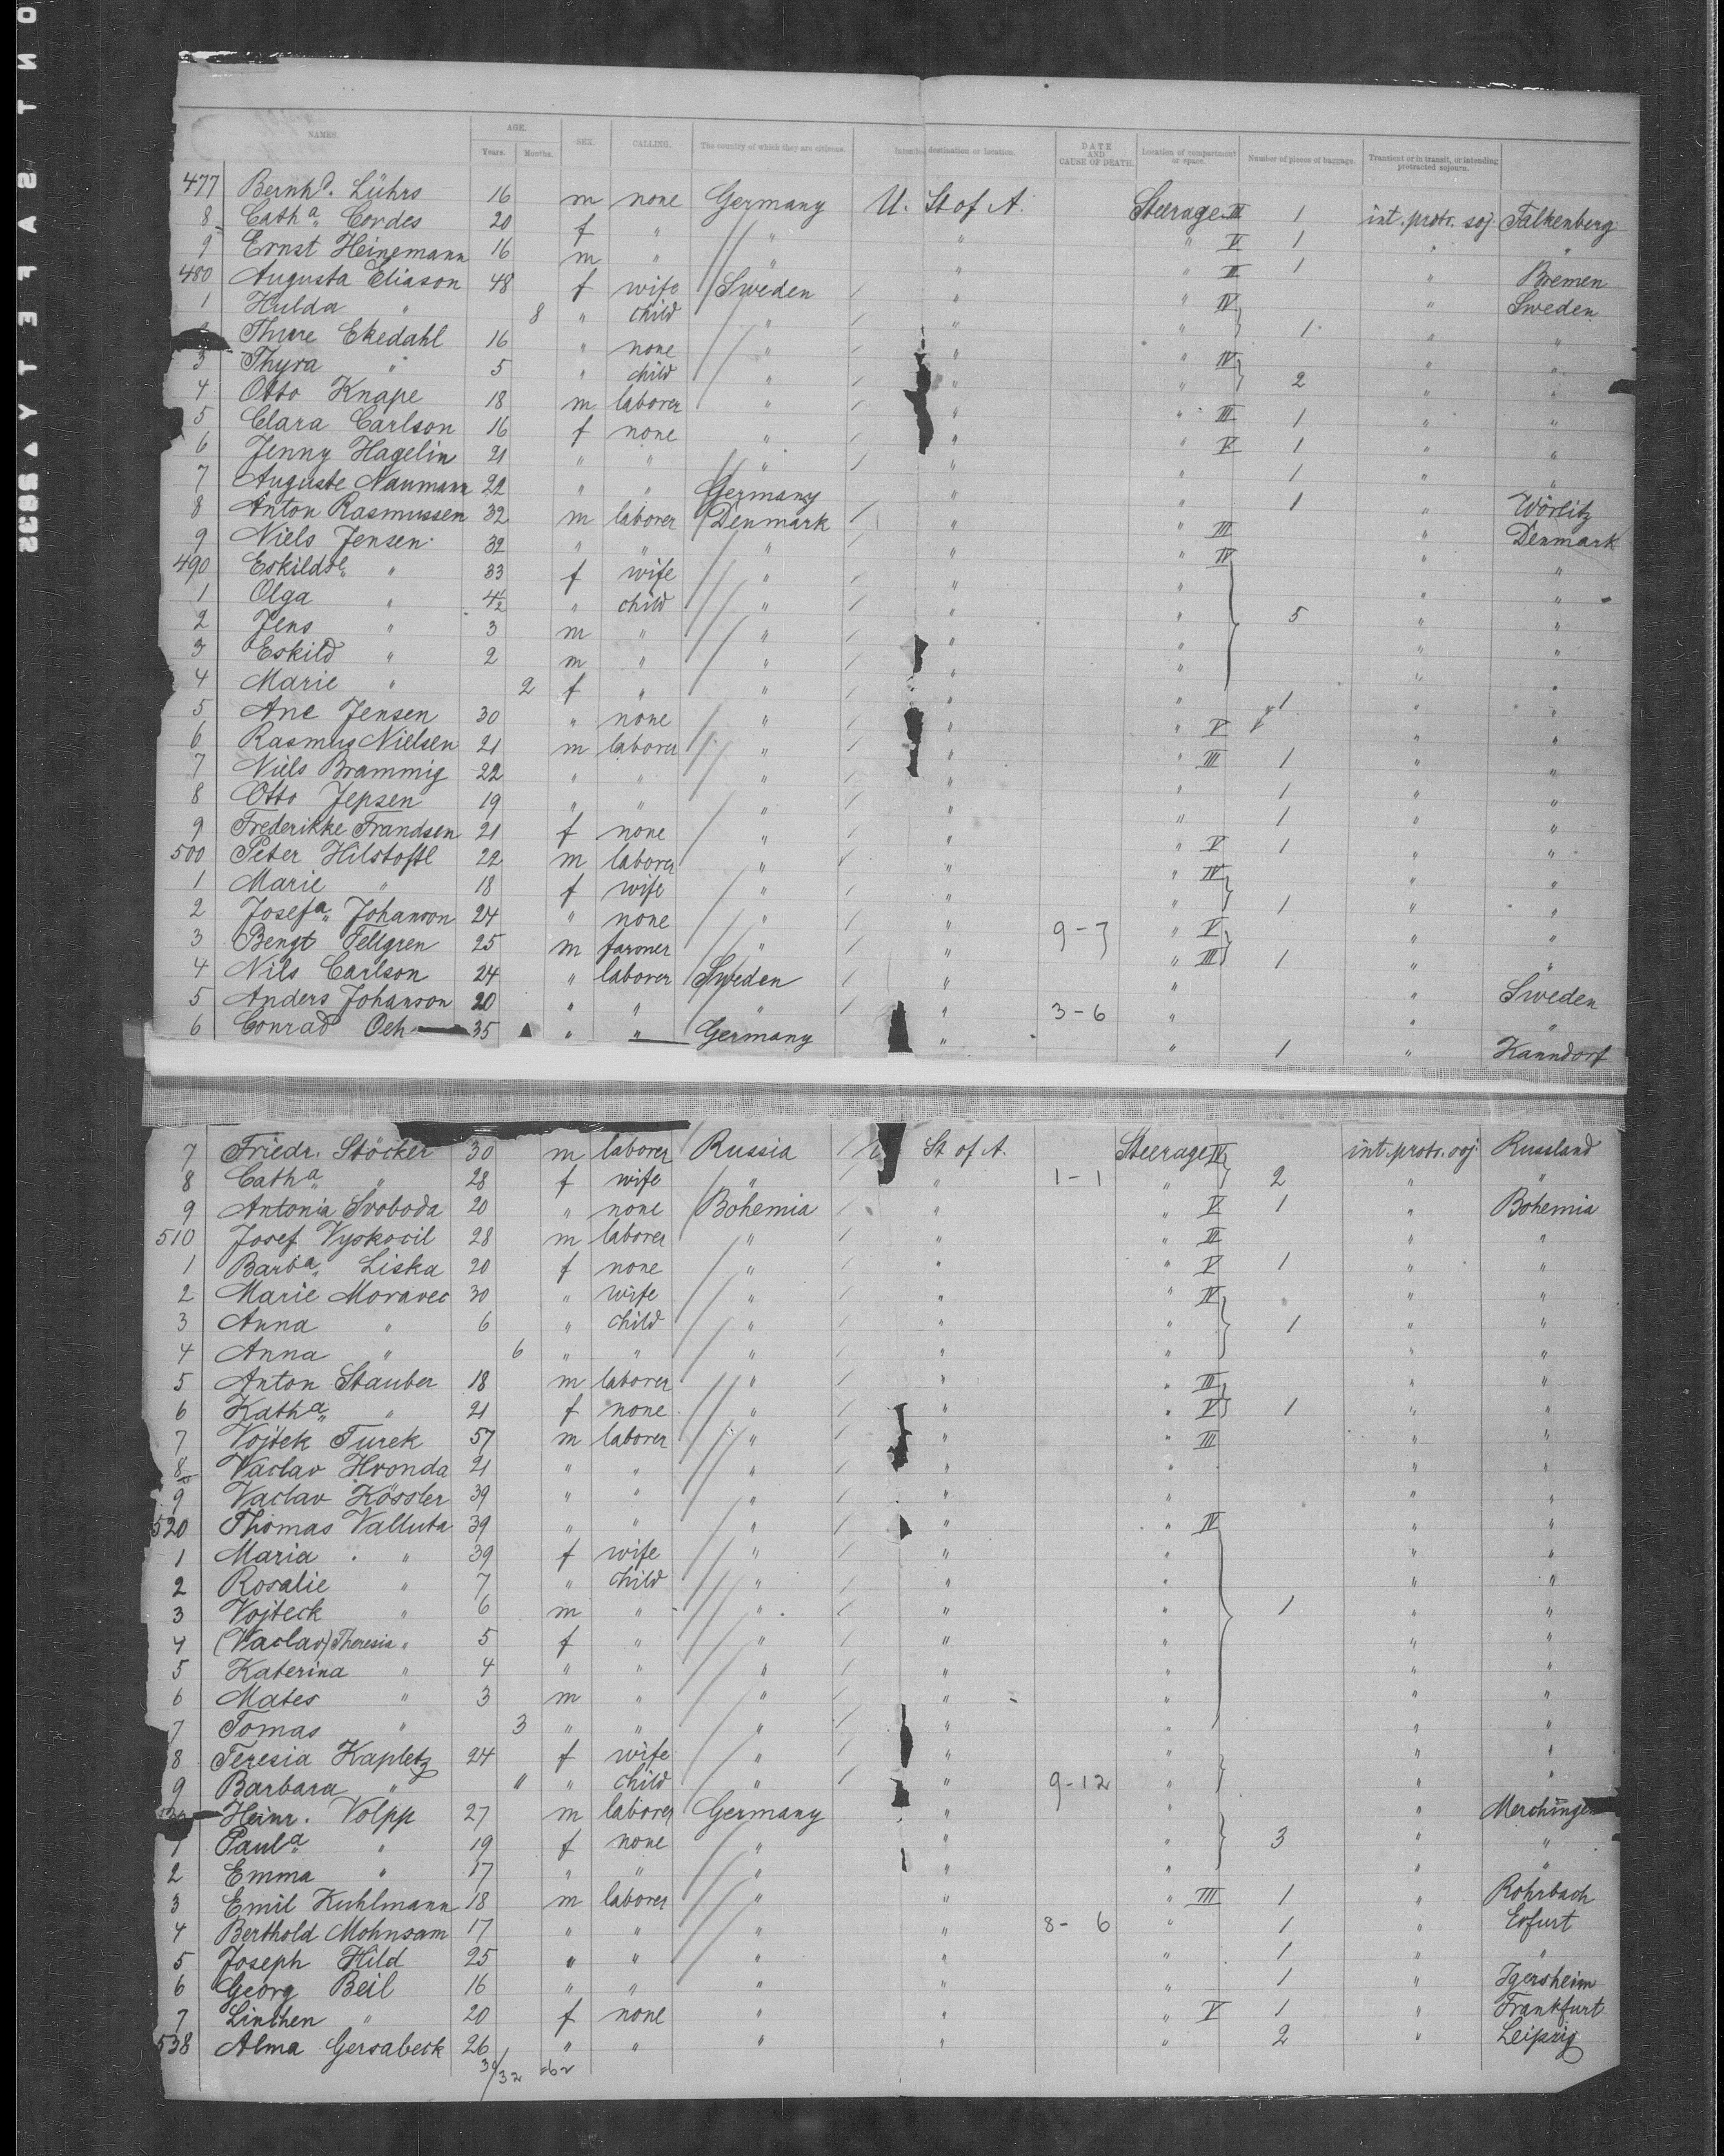 SAFETY▲S32S
NAMES. AGE. Years. Months. SEX. CALLING. The country of which they are citizens. Intended destination or location. DATE AND CAUSE OF DEATH. Location of compartment or space. Number of pieces of baggage. Transient or in transit, or intending protracted sojourn.
477 Bernhd. Lührs 16 m none Germany U. St of A. Steerage III 1 int. protr. soj. Falkenberg
8 Catha. Cordes 20 f " " " " V 1 " "
9 Ernst Heinemann 16 m " " " " III 1 " Bremen
480 Augusta Eliason 48 f wife Sweden " " IV " Sweden
1 Hulda " 8 " child " " " 1 " "
Thure Ekedahl 16 " none " " " IV " "
3 Thyra " 5 " child " " " 2 " "
4 Otto Knape 18 m laborer " " " III 1 " "
5 Clara Carlson 16 f none " " " V 1 " "
6 Jenny Hagelin 21 " " " " " 1 " "
7 Auguste Naumann 22 " " Germany " " 1 " Wörlitz
8 Anton Rasmussen 32 m laborer Denmark " " III " Denmark
9 Niels Jensen 32 " " " " " IV " "
490 Eskilde " 33 f wife " " " " "
1 Olga " 4½ " child " " " 5 " "
2 Jens " 3 m " " " " " "
3 Eskild " 2 m " " " " " "
4 Marie " 2 f " " " " " "
5 Ane Jensen 30 " none " " " V 1 " "
6 Rasmus Nielsen 21 m laborer " " " III 1 " "
7 Niels Brammig 22 " " " " " 1 " "
8 Otto Jepsen 19 " " " " " 1 " "
9 Frederikke Frandsen 21 f none " " " V 1 " "
500 Peter Hilstoftl 22 m laborer " " " IV " "
1 Marie " 18 f wife " " " 1 " "
2 Josefa. Johanson 24 " none " " 9-7 " V " "
3 Bengt Fellgren 25 m farmer " " " III 1 " "
4 Nils Carlson 24 " laborer Sweden " " " Sweden
5 Anders Johanson 20 " " " " 3-6 " " "
6 Conrad Oeh 35 " " Germany " " 1 " Kanndorf
7 Friedr. Stöcker 30 m laborer Russia St of A. Steerage IV int. protr. soj. Russland
8 Catha. " 28 f wife " " 1-1 " 2 " "
9 Antonia Svoboda 20 " none Bohemia " " V 1 " Bohemia
510 Josef Vyskocil 28 m laborer " " " III " "
1 Barba. Liska 20 f none " " " V 1 " "
2 Marie Moravec 30 " wife " " " IV " "
3 Anna " 6 " child " " " 1 " "
4 Anna " 6 " " " " " " "
5 Anton Stauber 18 m laborer " " " III " "
6 Katha. " 21 f none " " " V 1 " "
7 Vojtek Turek 57 m laborer " " " III " "
8 Vaclav Hronda 21 " " " " " " "
9 Vaclav Kössler 39 " " " " " " "
520 Thomas Valluta 39 " " " " " IV " "
1 Maria " 39 f wife " " " " "
2 Rosalie " 7 " child " " " " "
3 Vojteck " 6 m " " " " 1 " "
4 (Vaclav) Theresia " 5 f " " " " " "
5 Katerina " 4 " " " " " " "
6 Mates " 3 m " " " " " "
7 Tomas " 3 " " " " " " "
8 Teresia Kapletz 24 f wife " " " " "
9 Barbara " " " child " " 9-12 " " "
Heinr. Volpp 27 m laborer Germany " " " Merchingen
1 Paula. " 19 f none " " " 3 " "
2 Emma " 17 " " " " " " "
3 Emil Kuhlmann 18 m laborer " " " III 1 " Rohrbach
4 Berthold Mohnsam 17 " " " " 8-6 " 1 " Erfurt
5 Joseph Hild 25 " " " " " 1 " "
6 Georg Beil 16 " " " " " 1 " Igersheim
7 Linchen " 20 f none " " " V 1 " Frankfurt
538 Alma Gersabeck 26 " " " " " 2 " Leipzig
30/32